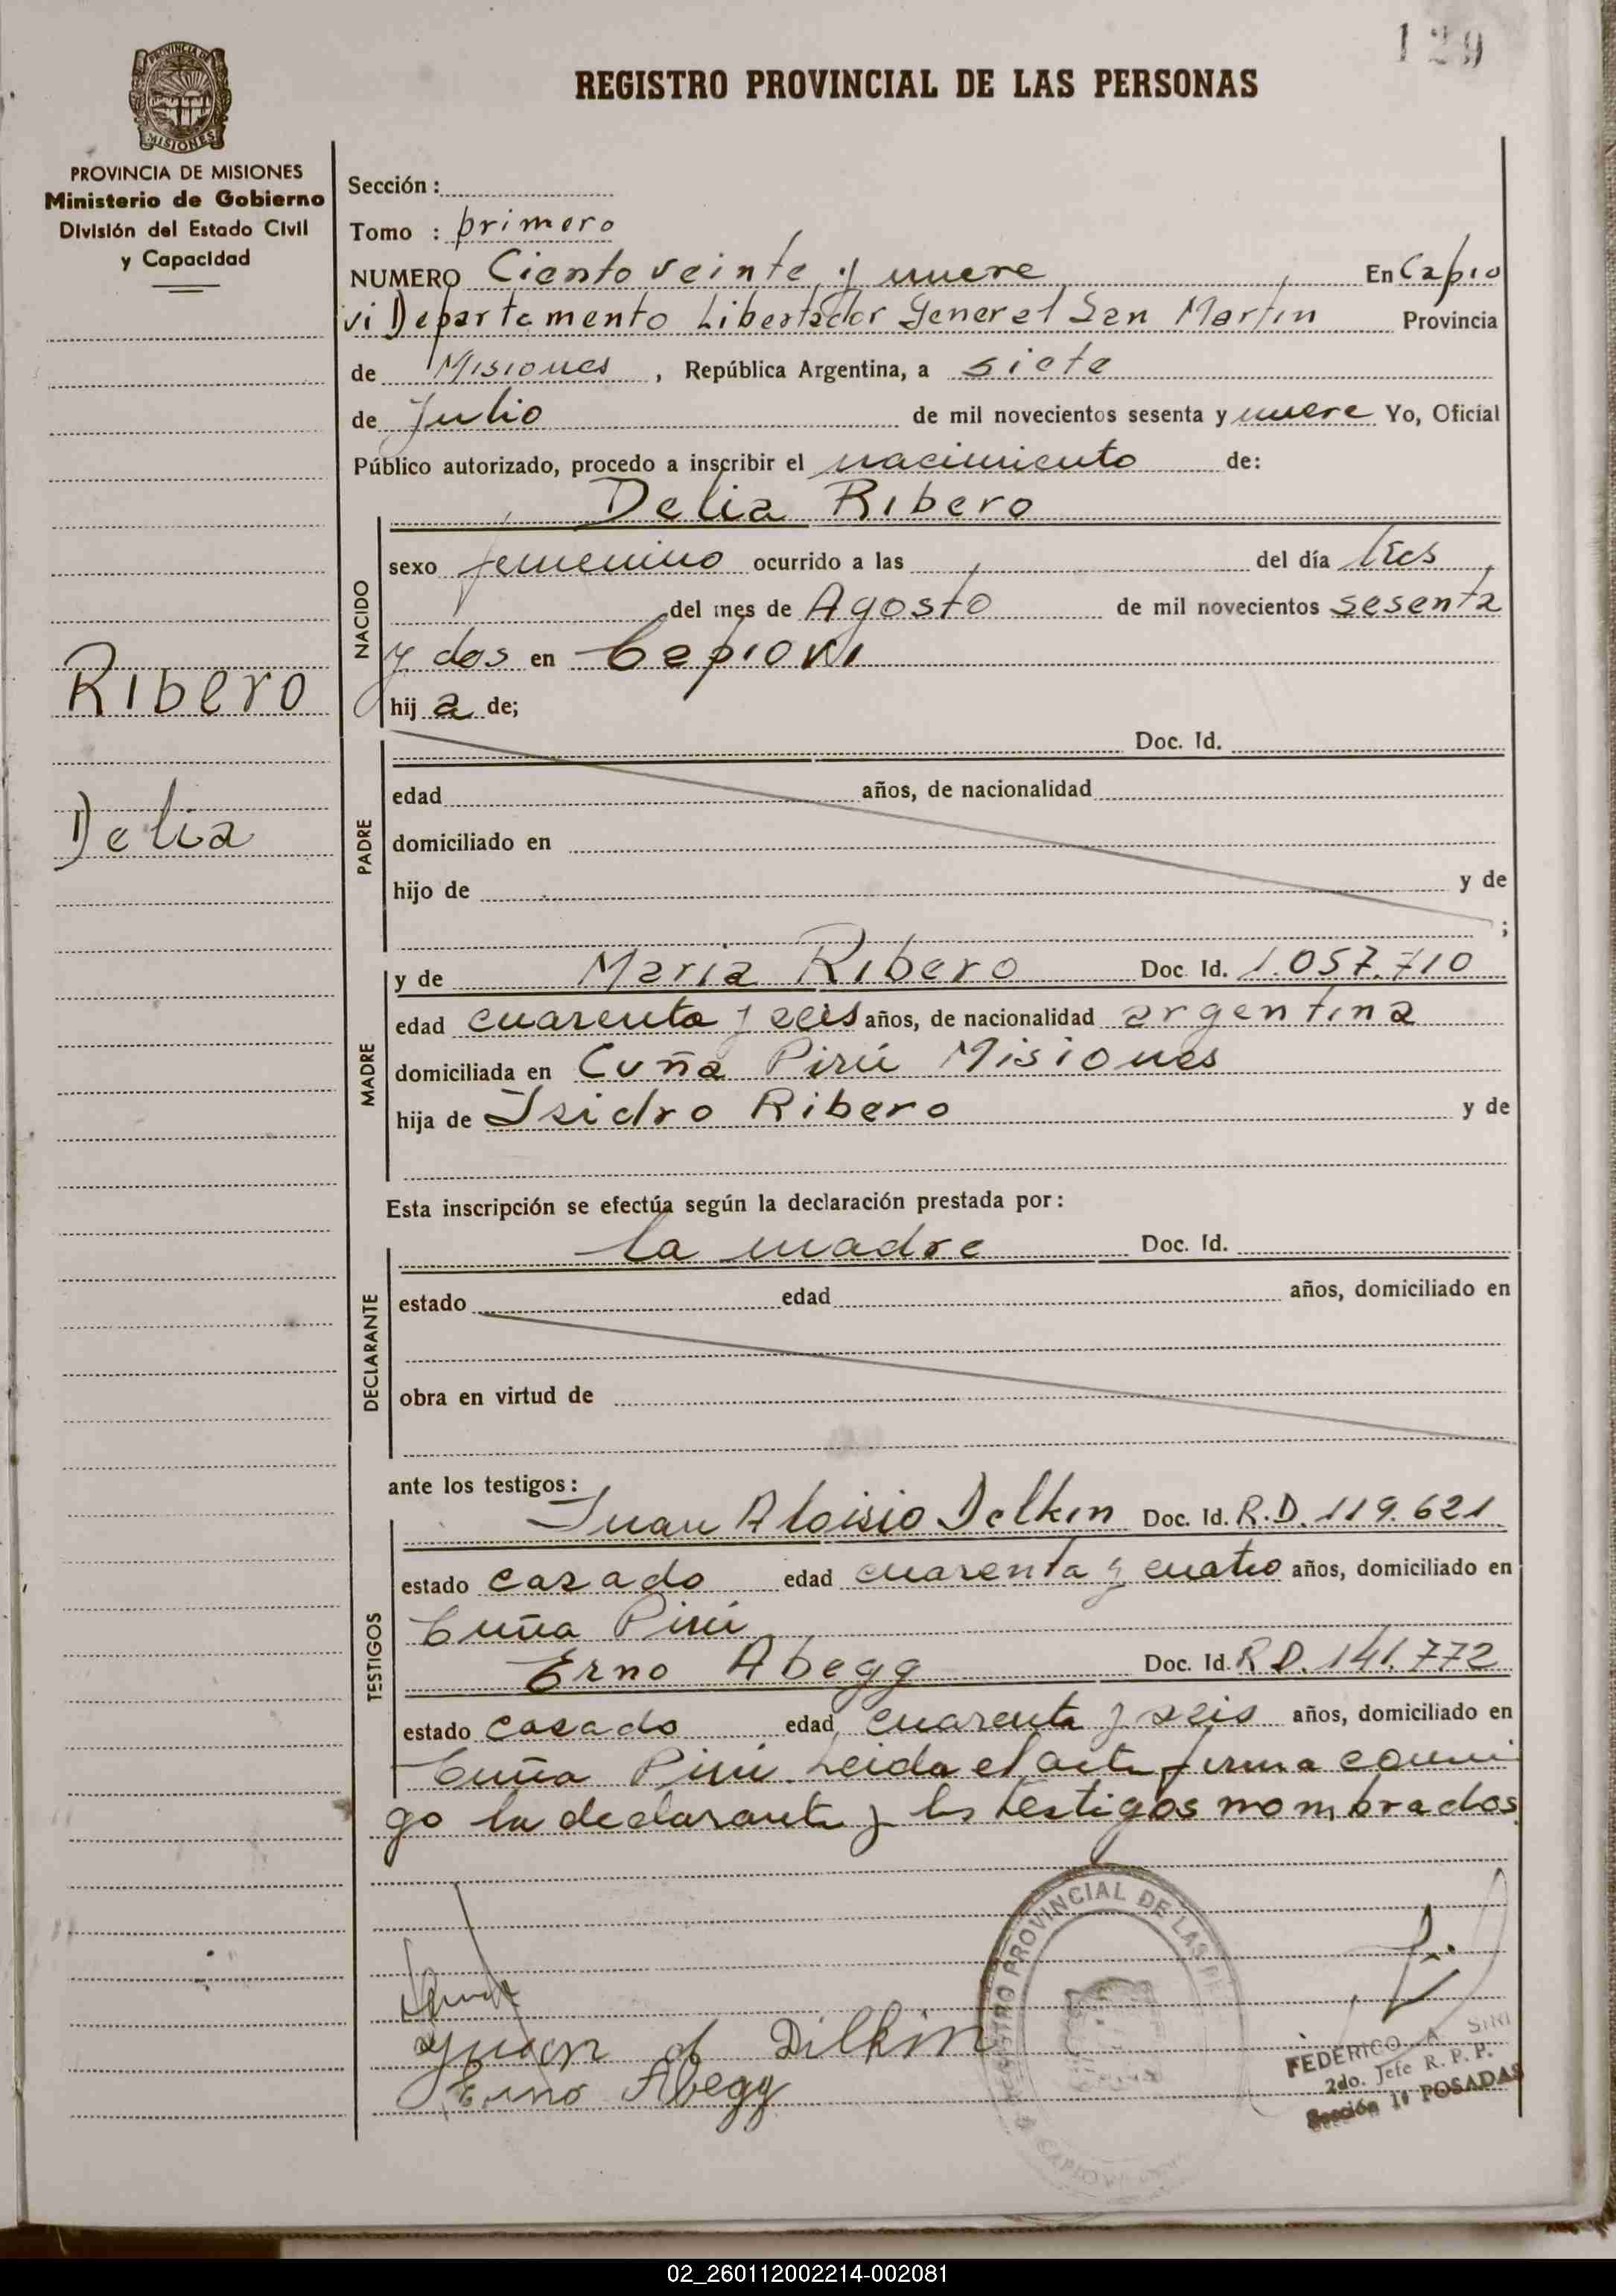 129
REGISTRO PROVINCIAL DE LAS PERSONAS
PROVINCIA DE MISIONES
PROVINCIA DE MISIONES
Ministerio de Gobierno
División del Estado Civil
y Capacidad
Sección :
Tomo : primero
NUMERO Ciento veinte y nueve En Capio
vi Departamento Libertador General San Martin Provincia
de Misiones , República Argentina, a siete
de Julio de mil novecientos sesenta y nueve Yo, Oficial
Público autorizado, procedo a inscribir el nacimiento de:
Delia Ribero
NACIDO
sexo femenino ocurrido a las del día tres
del mes de Agosto de mil novecientos sesenta
y dos en Capiovi
hij a de;
Ribero
Delia
PADRE
Doc. Id.
edad años, de nacionalidad
domiciliado en
hijo de y de
;
MADRE
y de Maria Ribero Doc. Id. 1.057.710
edad cuarenta y seis años, de nacionalidad argentina
domiciliada en Cuña Pirú Misiones
hija de Isidro Ribero y de
Esta inscripción se efectúa según la declaración prestada por :
DECLARANTE
la madre Doc. Id.
estado edad años, domiciliado en
obra en virtud de
ante los testigos :
TESTIGOS
Juan Aloisio Delkin Doc. Id. R.D. 119.621
estado casado edad cuarenta y cuatro años, domiciliado en
Cuña Pirú
Erno Abegg Doc. Id. R.D. 141.772
estado casado edad cuarenta y seis años, domiciliado en
Cuña Pirú. Leida el acta firma conmi
go la declarante y los testigos nombrados
REGISTRO PROVINCIAL DE LAS
CAPIOVI
Juan A Dilkin
Erno Abegg
FEDERICO A.
2do. Jefe R. P. P.
Sección 1ª POSADAS
02_260112002214-002081